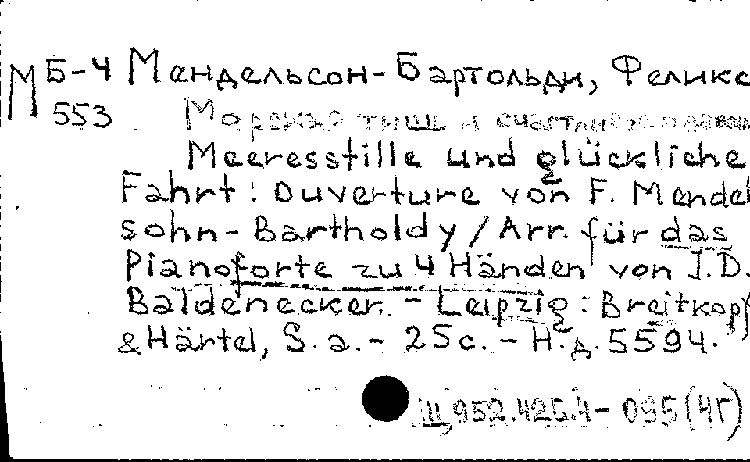 М Б-4 Мендельсон-Бартольди, Феликс
553 Морская тишь и счастливое
Meeresstille und glückliche
Fahrt: Ouverture von F. Mendel
sohn-Bartholdy / Arr. für das
Pianoforte zu 4 Händen von J.D.
Baldenecker. - Leipzig: Breitkopf
& Härtel, S. a. - 25 c. - Н.д. 5594.
Щ952.426.4-095(4Г)